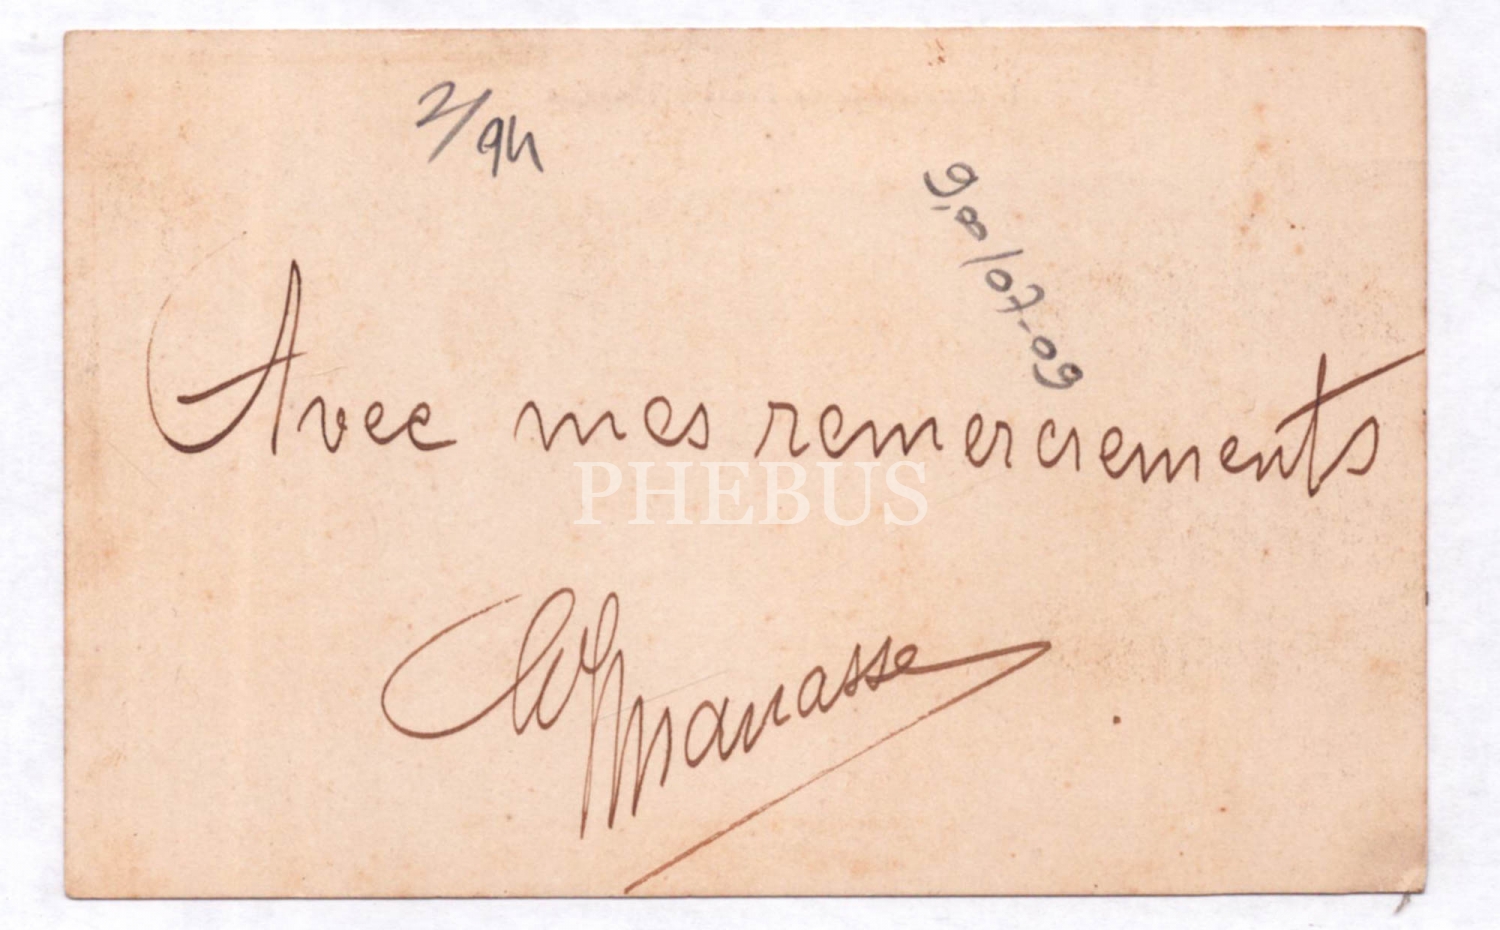 2/94
9,00/07-09
Avec mes remerciements
PHEBUS
Manasse